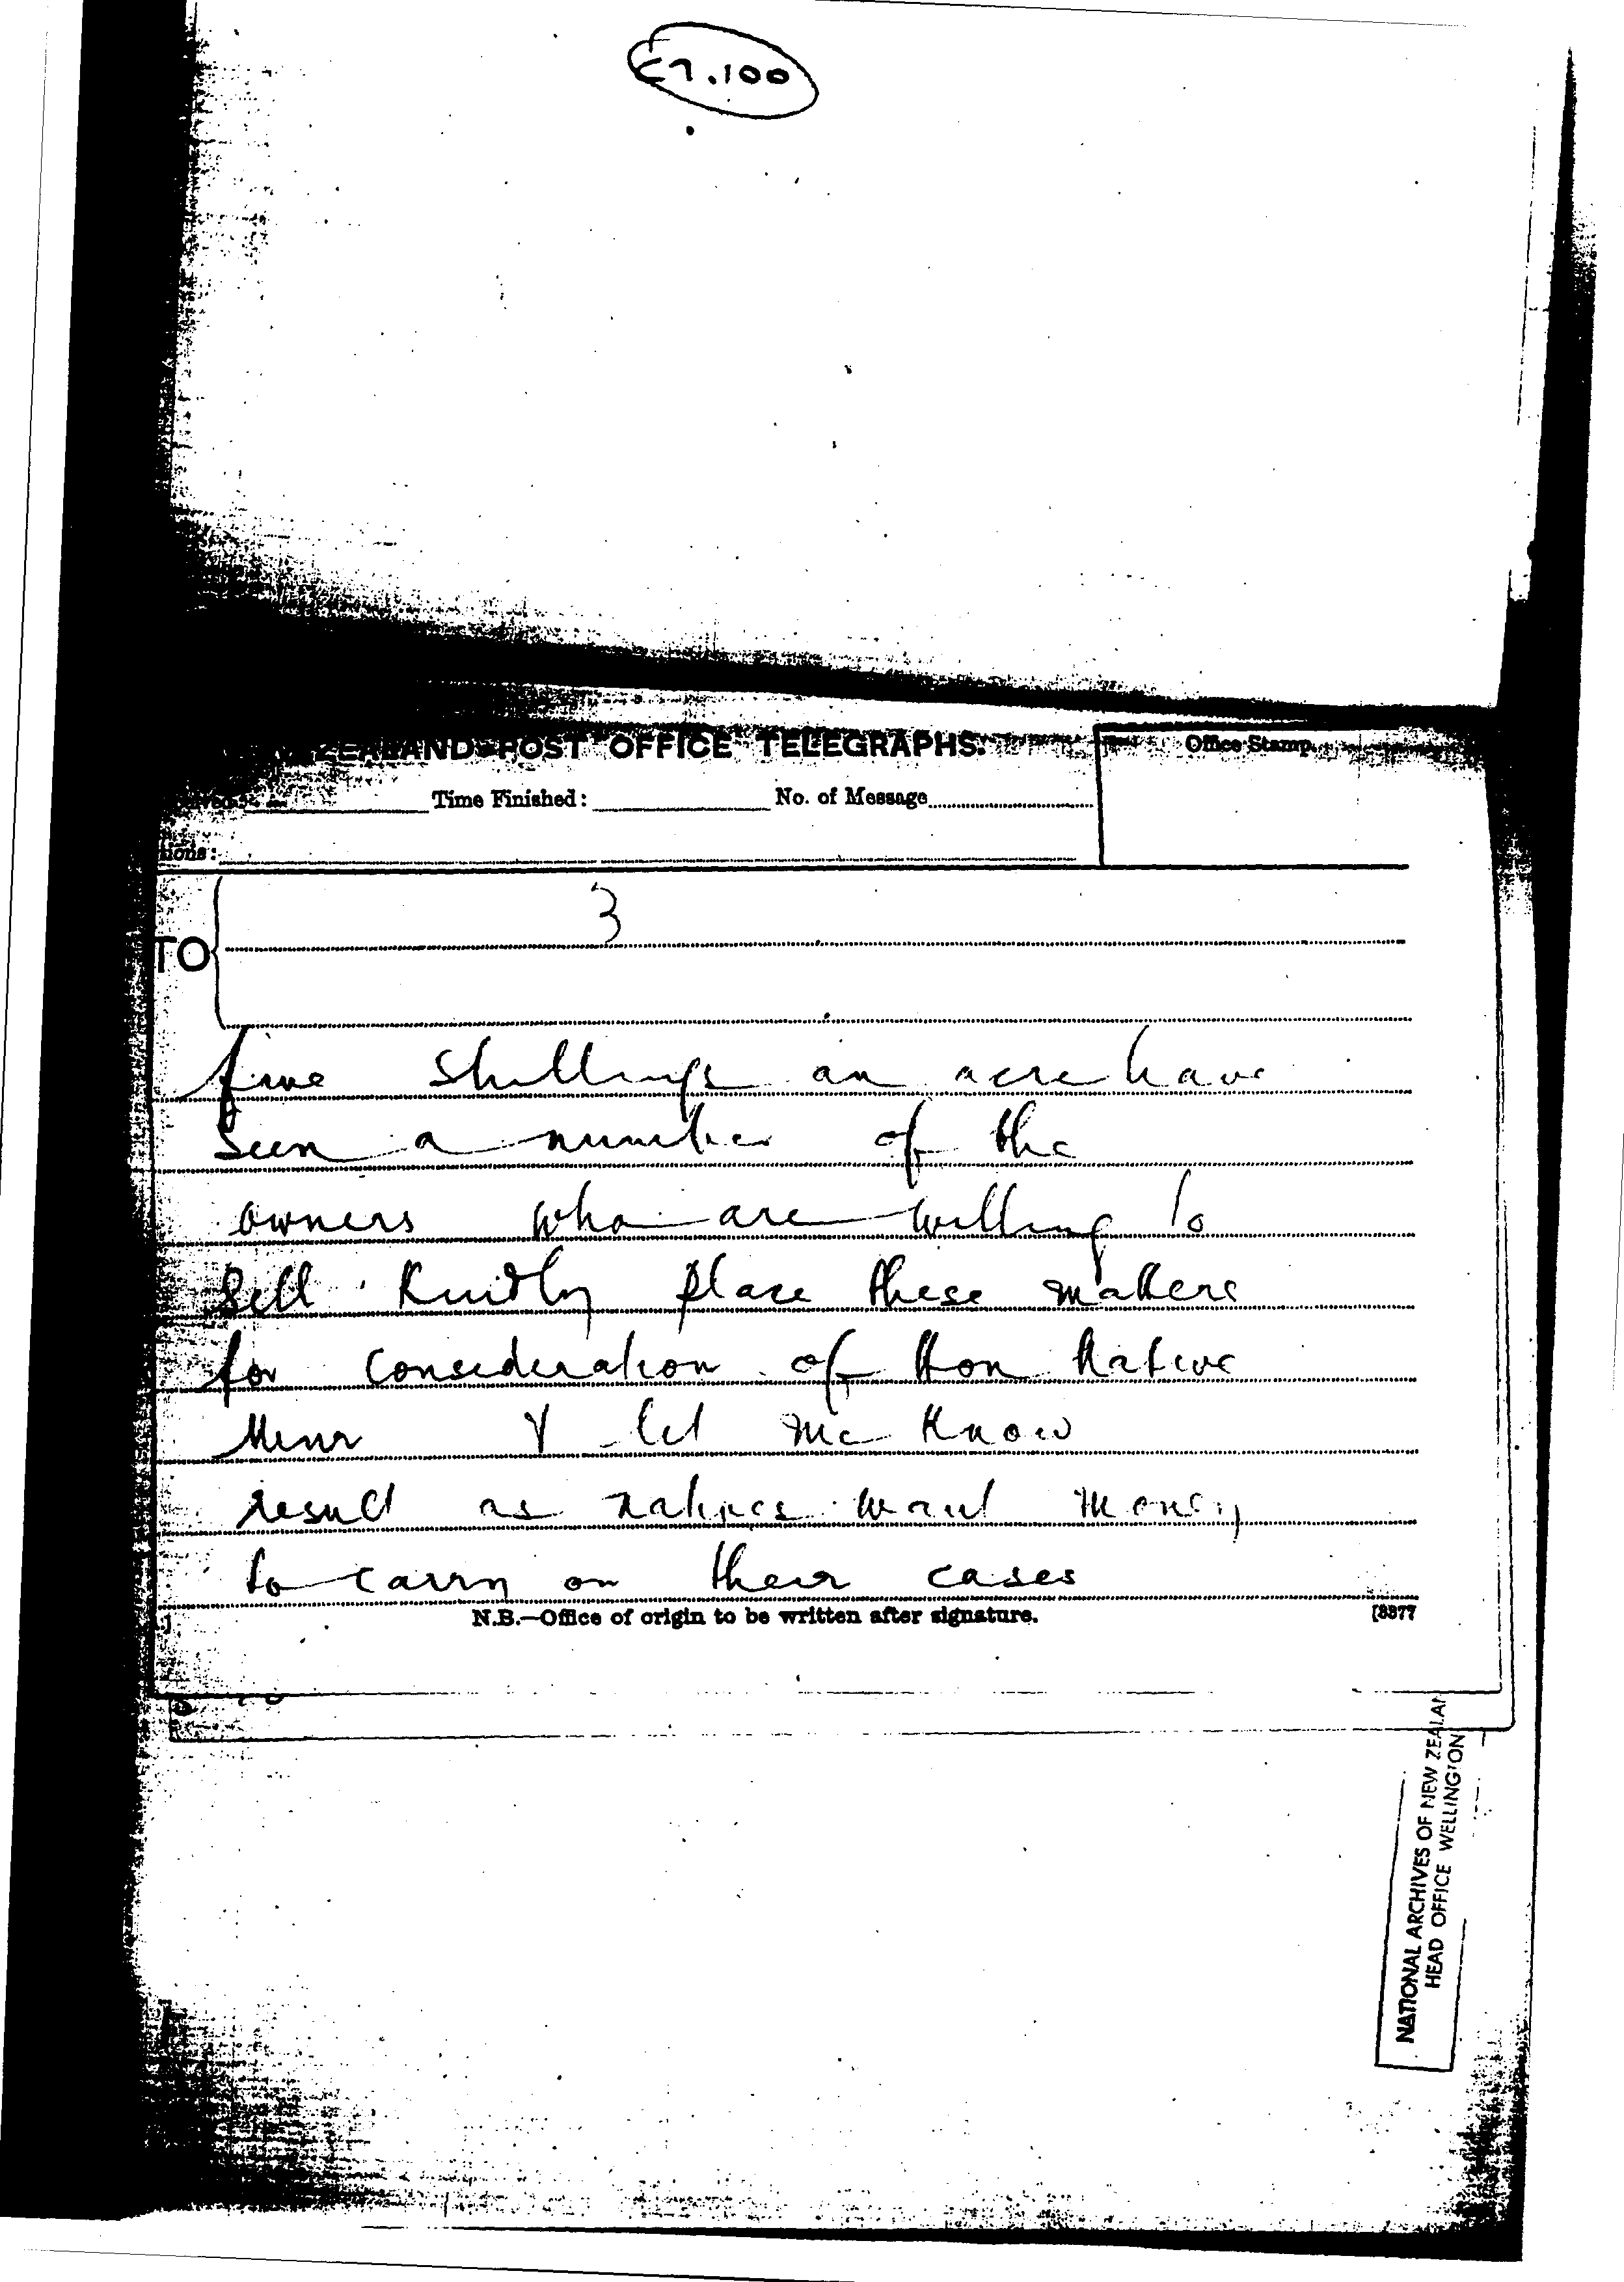 £7.100
ZEALAND POST OFFICE TELEGRAPHS.
Office Stamp.
Time Finished: No. of Message
tions:
3
TO
five shillings an acre have
seen a number of the
owners who are willing to
sell Kindly place these matters
for consideration of Hon Native
Minr & let me know
result as natives want money
to carry on their cases
N.B.—Office of origin to be written after signature.
[3377
NATIONAL ARCHIVES OF NEW ZEALAN
HEAD OFFICE WELLINGTON